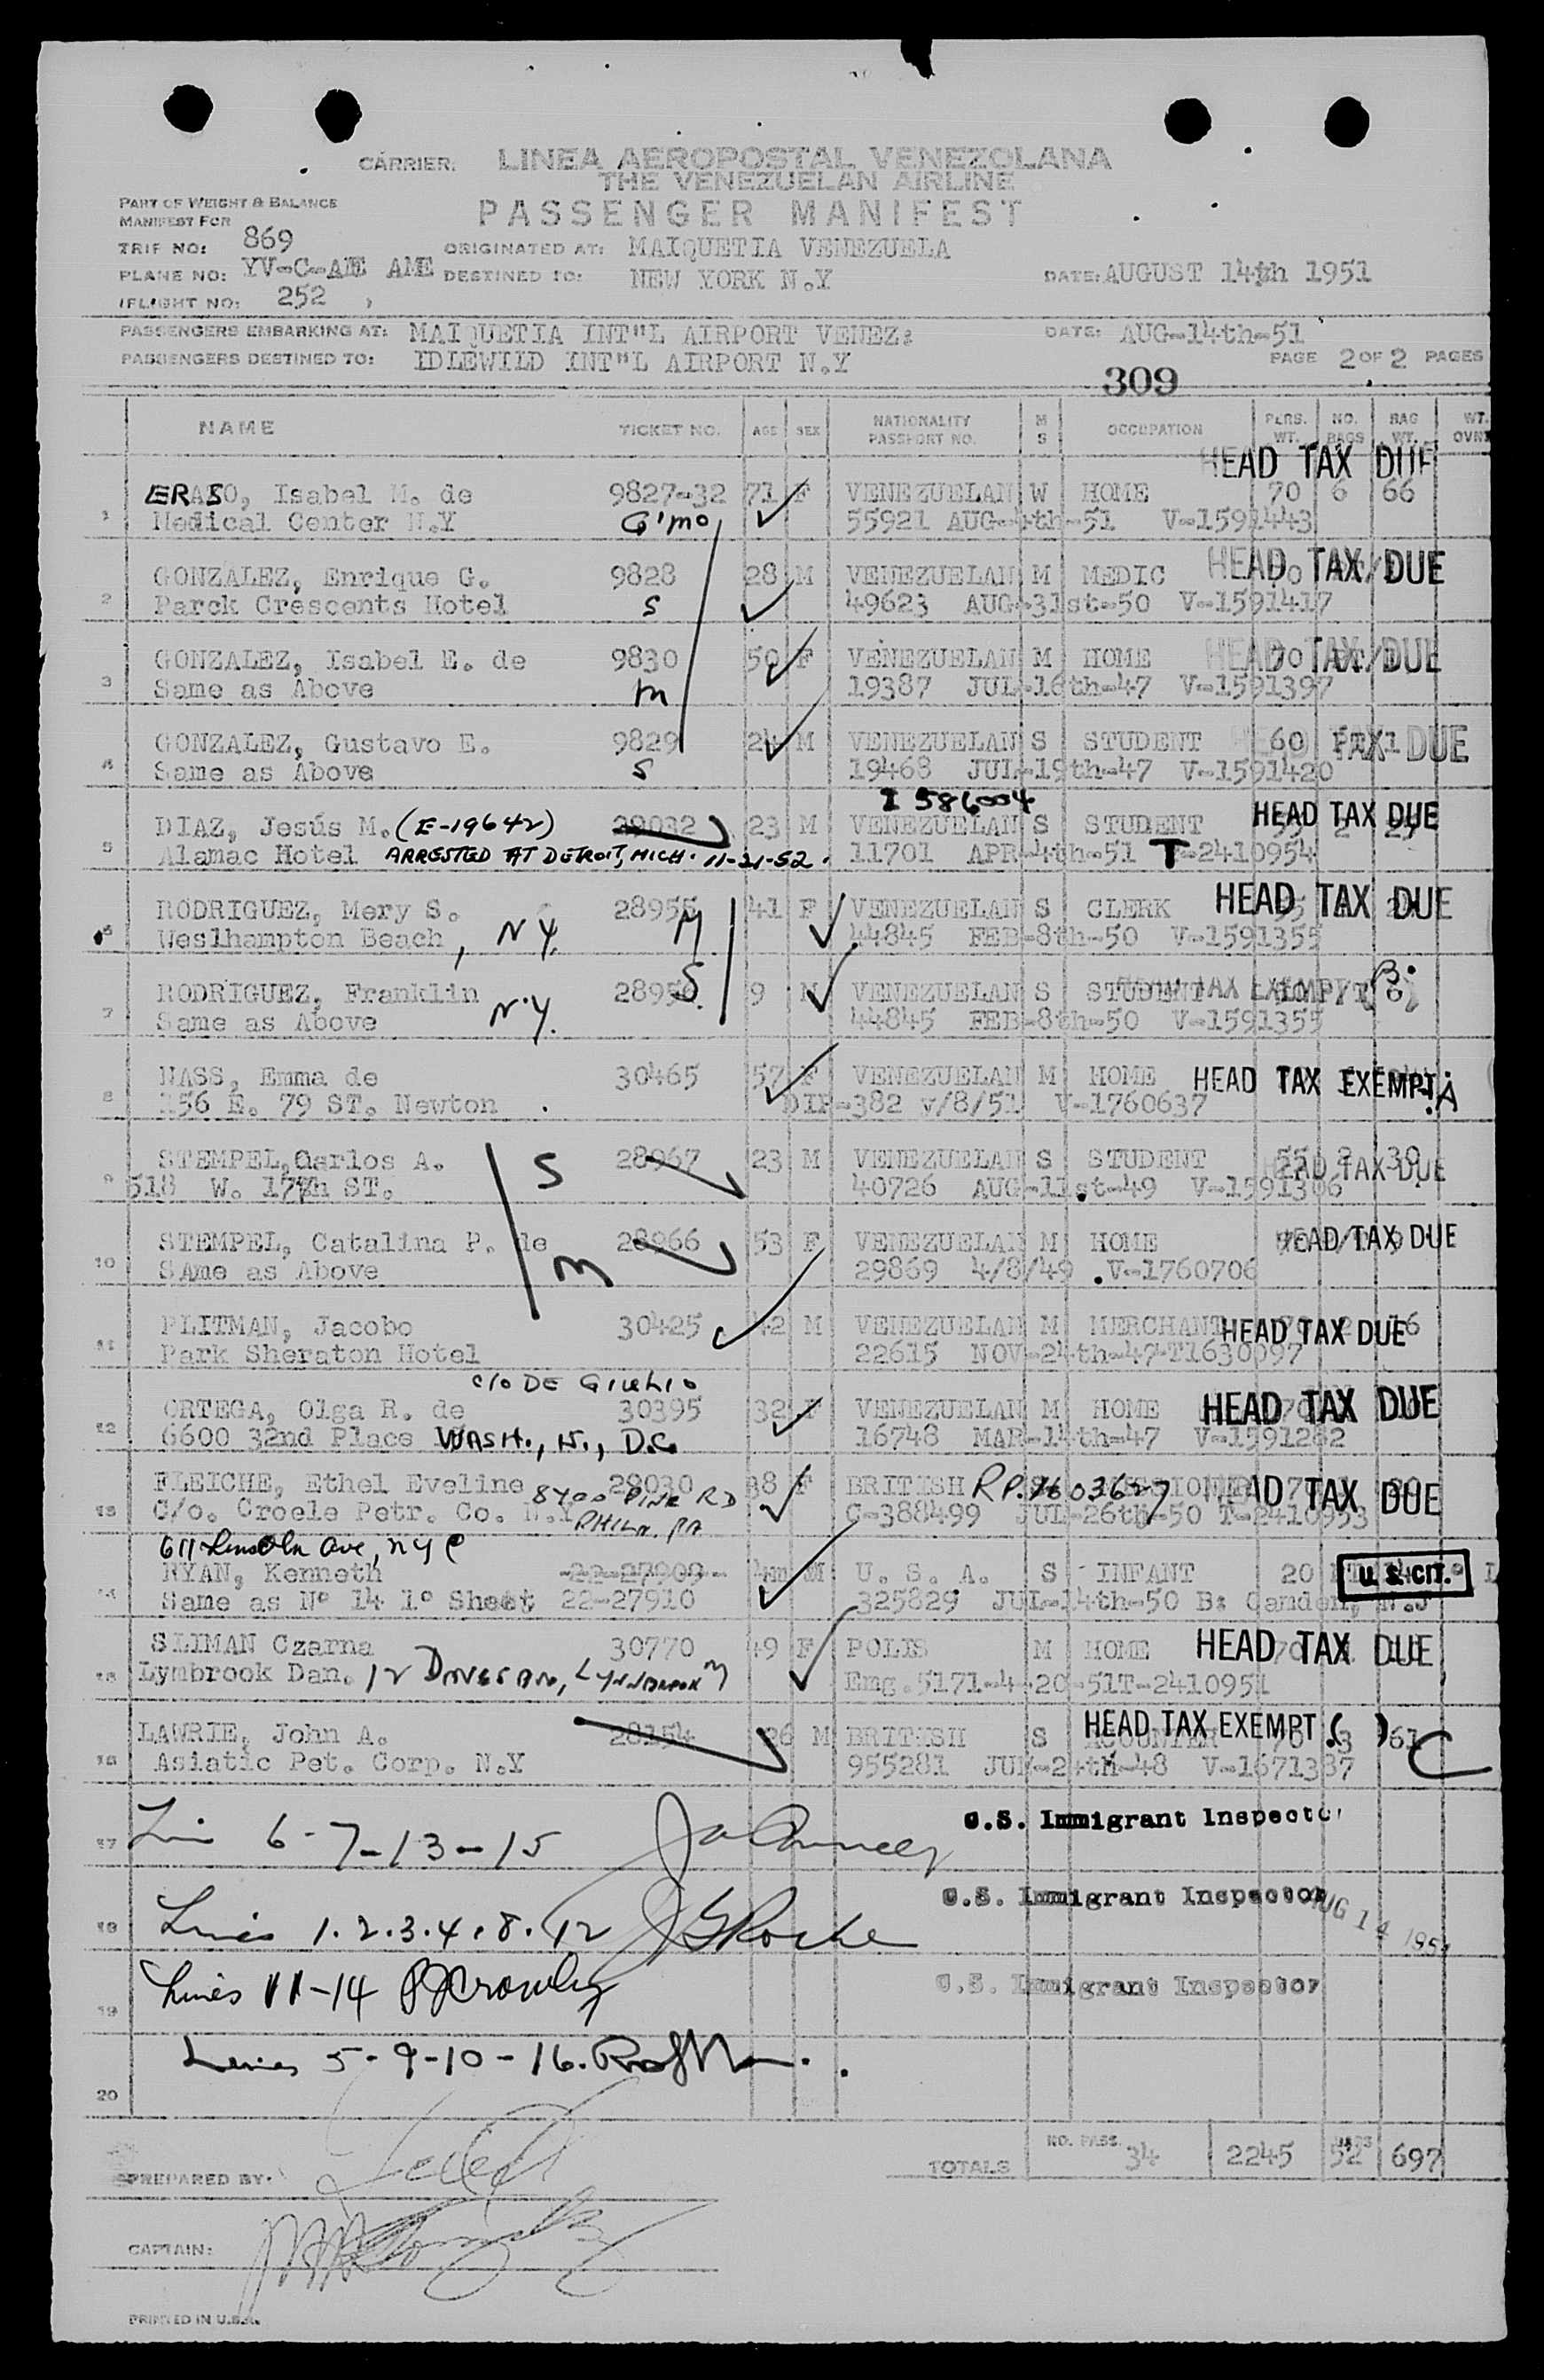 CARRIER: LINEA AEROPOSTAL VENEZOLANA
THE VENEZUELAN AIRLINE
PASSENGER MANIFEST
PART OF WEIGHT & BALANCE
MANIFEST FOR
TRIP NO: 869 ORIGINATED AT: MAIQUETIA VENEZUELA
PLANE NO: YV-C-AME AME DESTINED TO: NEW YORK N.Y DATE: AUGUST 14th 1951
FLIGHT NO: 252
PASSENGERS EMBARKING AT: MAIQUETIA INT"L AIRPORT VENEZ: DATE: AUG-14th-51
PASSENGERS DESTINED TO: IDLEWILD INT"L AIRPORT N.Y PAGE 2 OF 2 PAGES
309
NAME TICKET NO. AGE SEX NATIONALITY PASSPORT NO. M S OCCUPATION PERS. WT. NO. BAGS BAG WT. WT. OVN
HEAD TAX DUE
ERASO, Isabel M. de 9827-32 71 F VENEZUELAN W HOME 70 6 66
1 Medical Center N.Y G'mo 55921 AUG-4th-51 V-1591443
GONZALEZ, Enrique G. 9828 28 M VENEZUELAN M MEDIC HEAD TAX DUE
2 Parck Crescents Hotel S 49623 AUG-31st-50 V-1591417
GONZALEZ, Isabel E. de 9830 50 F VENEZUELAN M HOME 70 HEAD TAX DUE
3 Same as Above M 19387 JUL-16th-47 V-1591397
GONZALEZ, Gustavo E. 9829 24 M VENEZUELAN S STUDENT 60 TAX DUE
4 Same as Above S 19468 JUL-19th-47 V-1591420
I 586004
DIAZ, Jesús M. (E-19642) 29032 23 M VENEZUELAN S STUDENT HEAD TAX DUE
5 Alamac Hotel ARRESTED AT DETROIT, MICH. 11-21-52. 11701 APR-4th-51 T-2410954
RODRIGUEZ, Mery S. 28955 41 F VENEZUELAN S CLERK HEAD TAX DUE
6 Weslhampton Beach, N.Y. M 44845 FEB-8th-50 V-1591355
RODRIGUEZ, Franklin 28956 S 9 M VENEZUELAN S STUDENT HEAD TAX EXEMPT B.
7 Same as Above N.Y. 44845 FEB-8th-50 V-1591355
NASS, Emma de 30465 57 F VENEZUELAN M HOME HEAD TAX EXEMPT A
8 156 E. 79 ST. Newton . DIP-382 v/8/51 V-1760637
STEMPEL, Carlos A. S 28967 23 M VENEZUELAN S STUDENT 55 2 30 HEAD TAX DUE
9 518 W. 17th ST. 40726 AUG-11st-49 V-1591306
STEMPEL, Catalina P. de 28966 53 F VENEZUELAN M HOME HEAD TAX DUE
10 SAme as Above M 29869 4/8/49 V-1760706
PLITMAN, Jacobo 30425 42 M VENEZUELAN M MERCHANT HEAD TAX DUE
11 Park Sheraton Hotel 22615 NOV-24th-47 T1630097
C/O DE GIULIO
ORTEGA, Olga R. de 30395 32 F VENEZUELAN M HOME HEAD TAX DUE
12 6600 32nd Place WASH., N., D.C. 16748 MAR-14th-47 V-1591282
FLEICHE, Ethel Eveline 29030 38 F BRITISH HEAD TAX DUE
8400 PINE RD
13 C/o. Creole Petr. Co. N.Y PHILA. PA C-388499 JUL-26th-50 T-2410953
611 Lincoln Ave, NYC
RYAN, Kenneth 22-27909 M U. S. A. S INFANT 20 U.S.CIT.
14 Same as Nº 14 1º Sheet 22-27910 325829 JUL-14th-50 B: Camden, N.J
SLIMAN Czarna 30770 49 F POLIS M HOME HEAD TAX DUE
15 Lymbrook Dan. Emg.5171-4-20-51T-2410951
LAWRIE, John A. 28154 26 M BRITISH S HEAD TAX EXEMPT ( ) 3 61 C
16 Asiatic Pet. Corp. N.Y 955281 JUN-24th-48 V-1671387
17 6-7-13-15 U.S. Immigrant Inspector
18 Lines 1.2.3.4.8.12 JGRoche U.S. Immigrant Inspector AUG 14 1951
19 Lines 11-14 Crowley U.S. Immigrant Inspector
Lines 5-9-10-16.
20
TOTALS NO. PASS. 34 2245 52 697
PREPARED BY:
CAPTAIN:
PRINTED IN U.S.A.